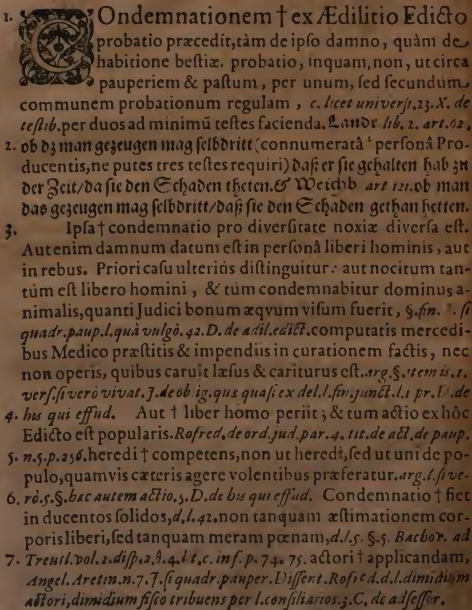 1. COndemnationem † ex Ædilitio Edicto
probatio præcedit, tàm de ipſo damno, quàm de
habitione beſtiæ. probatio, inquam, non, ut circa
pauperiem & paſtum, per unum, ſed ſecundum
communem probationum regulam, c. licet univerſi. 23. X. de
teſtib. per duos ad minimũ teſtes facienda. Landr lib. 2. art. 62.
2. ob dz man gezeugen mag ſelbdritt (connumeratâ † perſonâ Pro-
ducentis, ne putes tres teſtes requiri) daß er ſie gehalten hab zu
der Zeit/ da ſie den Schaden theten. & Weichb art 121. ob man
das gezeugen mag ſelbdritt/ daß ſie den Schaden gethan hetten.
3. Ipſa † condemnatio pro diverſitate noxiæ diverſa eſt.
Aut enim damnum datum eſt in perſonâ liberi hominis, aut
in rebus. Priori caſu ulteriùs diſtinguitur: aut nocitum tan-
tùm eſt libero homini, & tùm condemnabitur dominus a-
nimalis, quanti Judici bonum æqvum viſum fuerit, §. fin. J. ſi
quadr. paup. l. quâ vulgò. 42. D. de ædil. edict. computatis mercedi-
bus Medico præſtitis & impendiis in curationem factis, nec
non operis, quibus caruit læſus & cariturus eſt. arg. §. item is. 1.
verſ. ſi verò vivat. J. de ob ig. quæ quaſi ex del. l. fin. junct. l. 1 pr. D. de
4. his qui effud. Aut † liber homo periit; & tum actio ex hôc
Edicto eſt popularis. Rofred. de ord. jud. par. 4. tit. de act. de paup.
5. n. 5. p. 256. heredi † competens, non ut heredi, ſed ut uni de po-
pulo, quamvis cæteris agere volentibus præferatur. arg. l. ſi ve-
6. rò. 5. §. hæc autem actio. 5. D. de his qui effud. Condemnatio † fiet
in ducentos ſolidos, d. l. 42. non tanquam æſtimationem cor-
poris liberi, ſed tanquam meram pœnam, d. l. 5. §. 5. Bachov. ad
7. Treutl. vol. 2. diſp. 2. 9. 4. l. t. c. inf. p. 74. 75. actori † applicandam,
Angel. Aretin. n. 7. J. ſi quadr. pauper. Diſſent. Rofred. d. l. dimidium
actori, dimidium fiſco tribuens per l. conſiliarios. 3. C. de aſſeſſor.